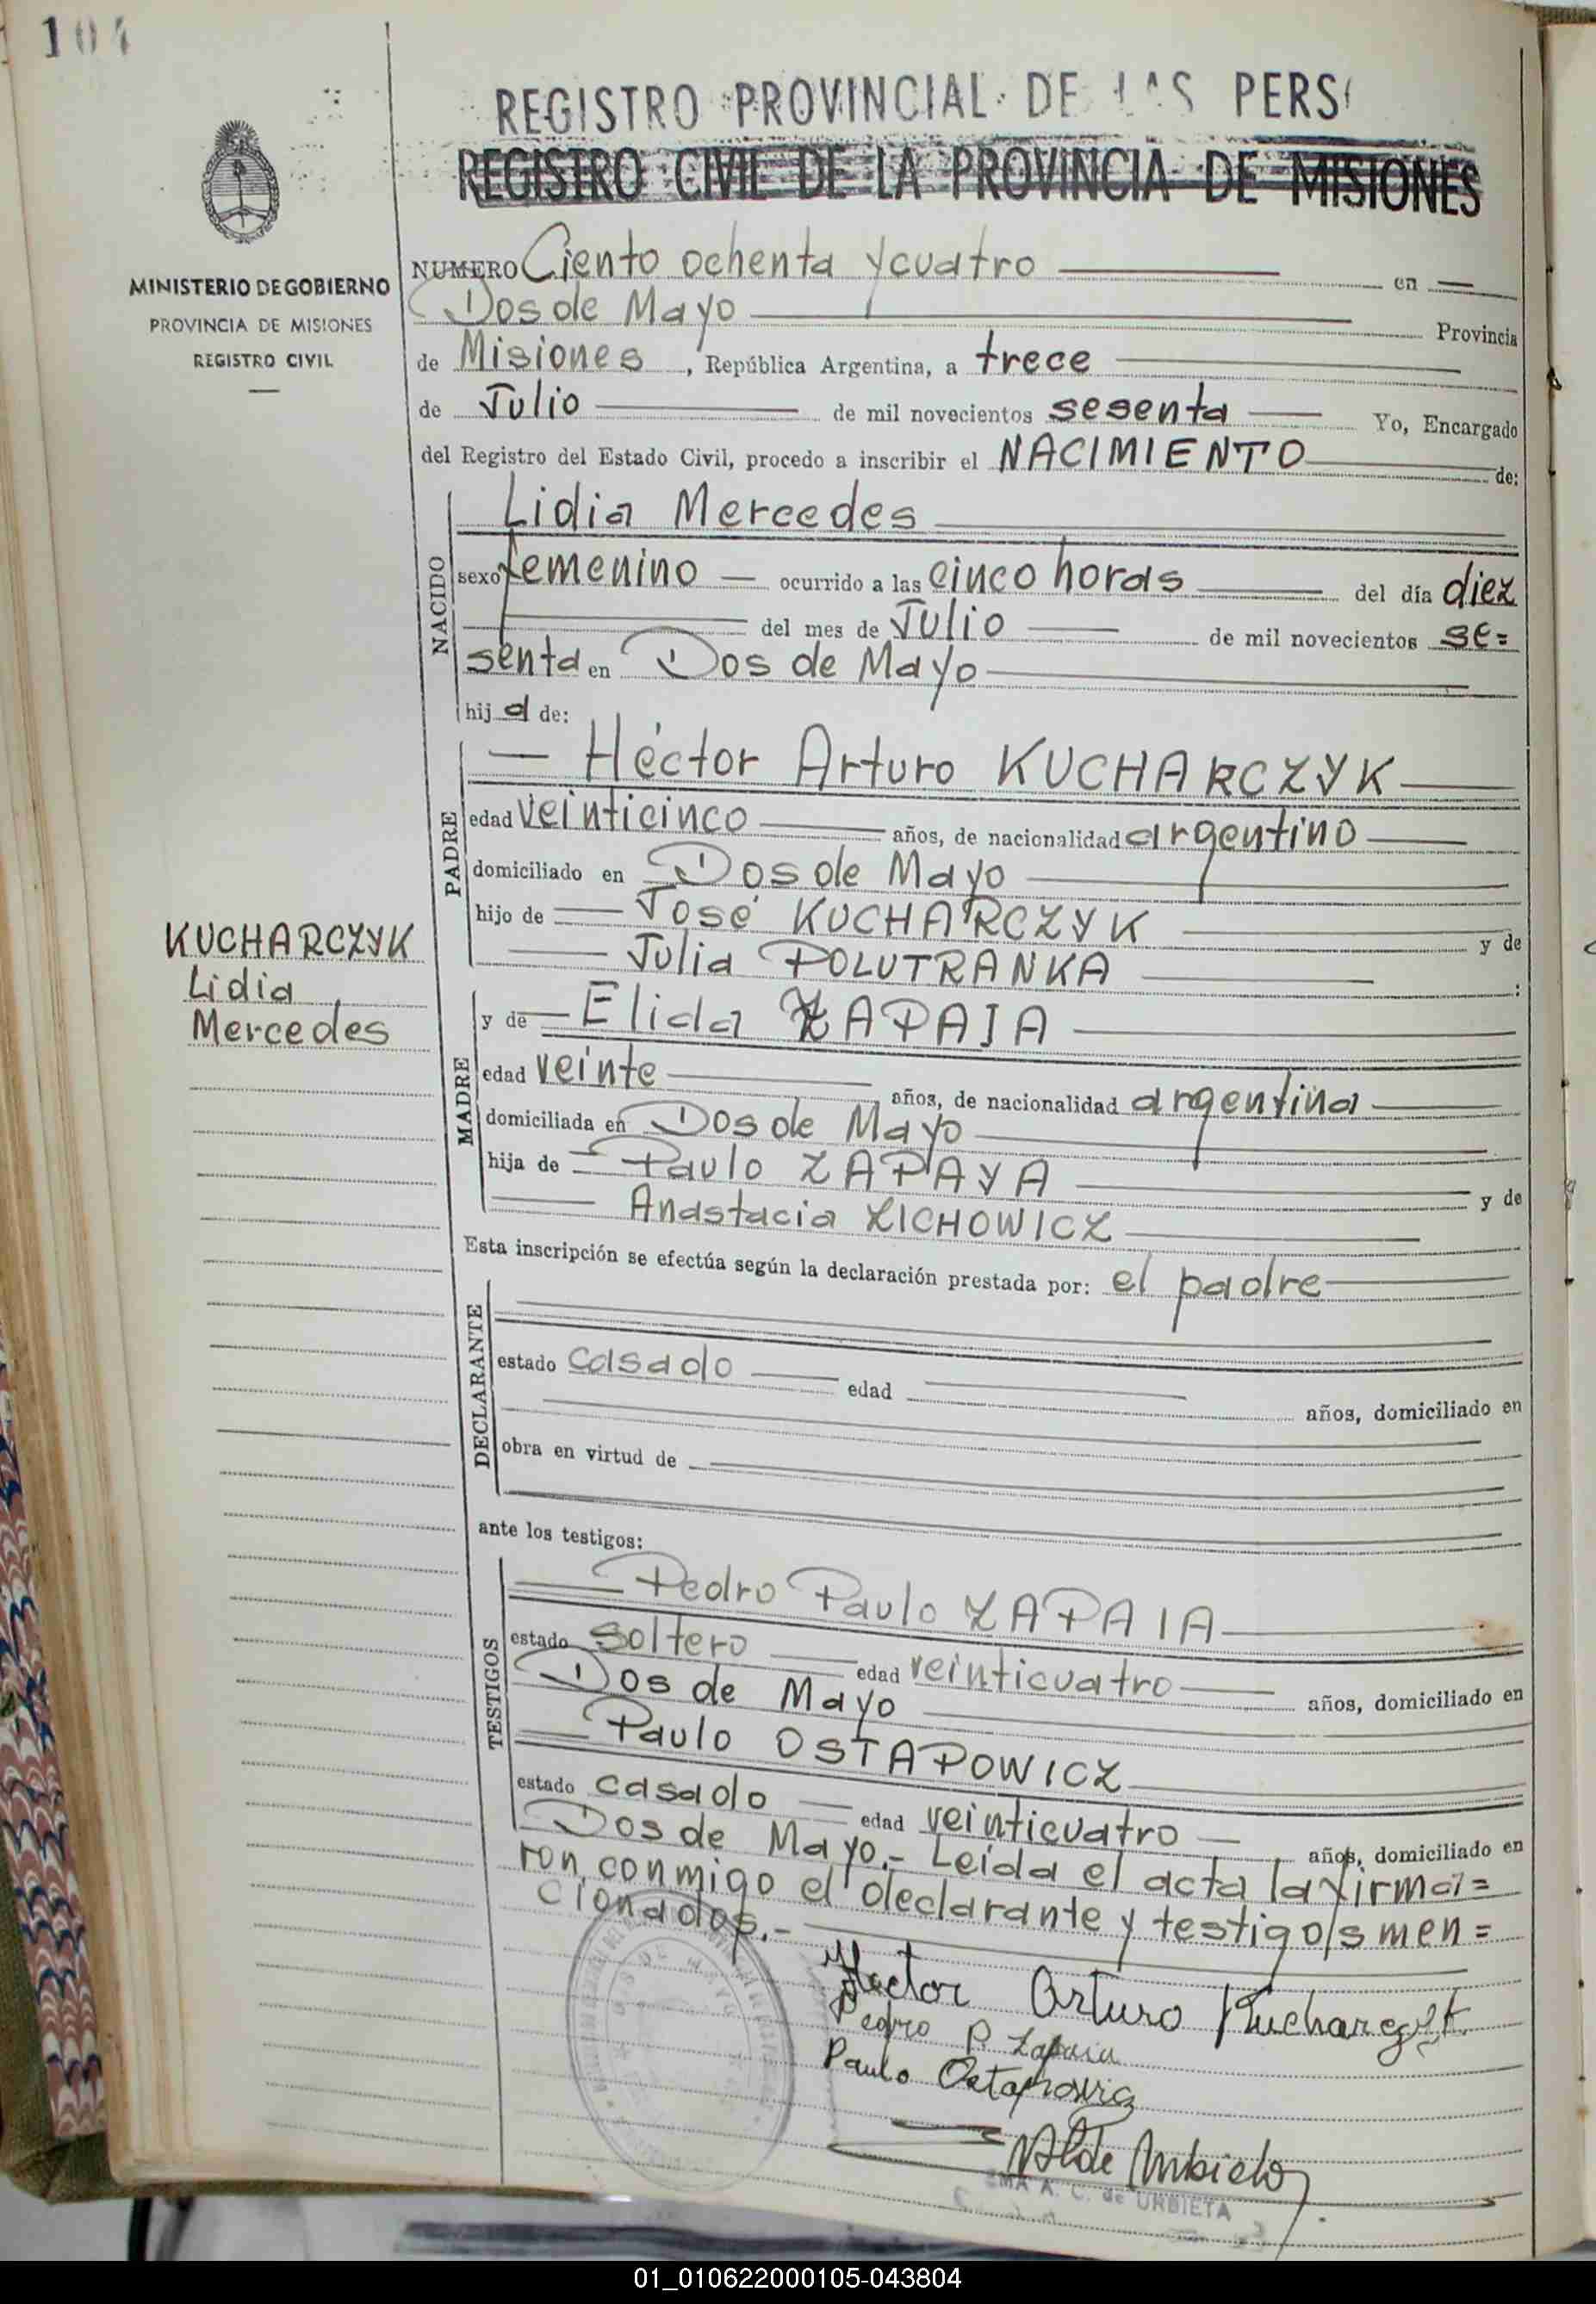 104
REGISTRO PROVINCIAL DE LAS PERS
REGISTRO CIVIL DE LA PROVINCIA DE MISIONES
MINISTERIO DE GOBIERNO
PROVINCIA DE MISIONES
REGISTRO CIVIL
NUMERO Ciento ochenta y cuatro en
Dos de Mayo Provincia
de Misiones, República Argentina, a trece
de Julio de mil novecientos sesenta Yo, Encargado
del Registro del Estado Civil, procedo a inscribir el NACIMIENTO de:
NACIDO
Lidia Mercedes
sexo femenino ocurrido a las cinco horas del día diez
del mes de Julio de mil novecientos se=
senta en Dos de Mayo
hija de:
PADRE
Héctor Arturo KUCHARCZYK
edad veinticinco años, de nacionalidad argentino
domiciliado en Dos de Mayo
hijo de José KUCHARCZYK y de
Julia POLUTRANKA :
KUCHARCZYK
Lidia
Mercedes
MADRE
y de Elida ZAPAJA
edad veinte años, de nacionalidad argentina
domiciliada en Dos de Mayo
hija de Paulo ZAPAYA y de
Anastacia ZICHOWICZ
Esta inscripción se efectúa según la declaración prestada por: el padre
DECLARANTE
estado casado edad años, domiciliado en
obra en virtud de
ante los testigos:
TESTIGOS
Pedro Paulo ZAPAIA
estado soltero edad veinticuatro años, domiciliado en
Dos de Mayo
Paulo OSTAPOWICZ
estado casado edad veinticuatro años, domiciliado en
Dos de Mayo.- Leida el acta la firma=
ron conmigo el declarante y testigos men=
cionados.-
Hector Arturo Kucharczyk
Pedro P. Zapaia
Paulo Ostapowicz
A. C. de URBIETA
01_010622000105-043804